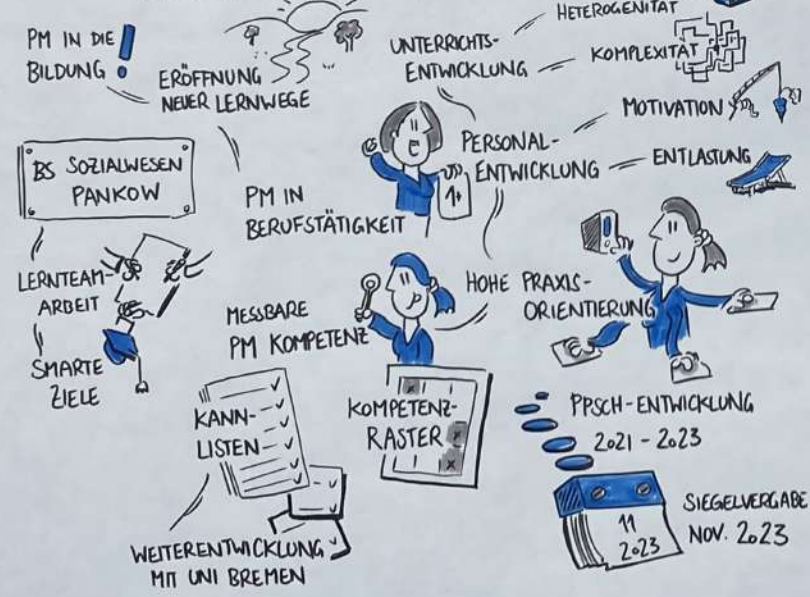 PM IN DIE
BILDUNG !
ERÖFFNUNG
NEUER LERNWEGE
UNTERRICHTS-
ENTWICKLUNG
HETEROGENITÄT
KOMPLEXITÄT
MOTIVATION
PERSONAL-
ENTWICKLUNG
1+
ENTLASTUNG
BS SOZIALWESEN
PANKOW
PM IN
BERUFSTÄTIGKEIT
LERNTEAM-
ARBEIT
SMARTE
ZIELE
MESSBARE
PM KOMPETENZ
HOHE PRAXIS-
ORIENTIERUNG
KANN-
LISTEN
KOMPETENZ-
RASTER
PPSCH-ENTWICKLUNG
2021 - 2023
11
2023
SIEGELVERGABE
NOV. 2023
WEITERENTWICKLUNG
MIT UNI BREMEN